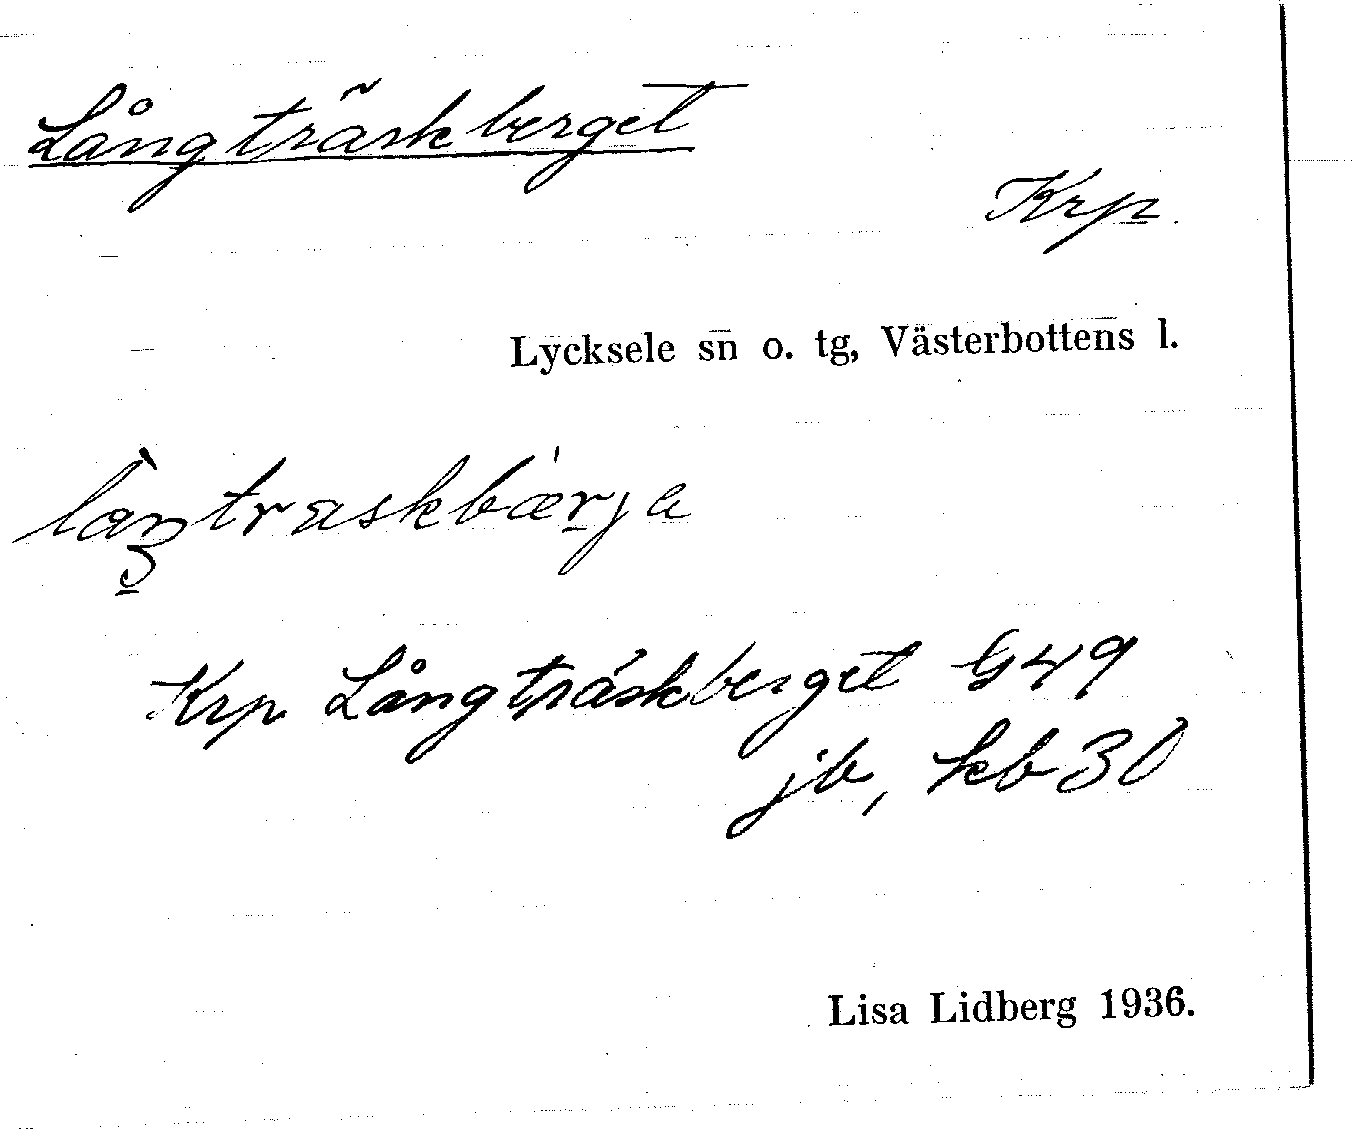 Långträskberget
Krp.
Lycksele sn o. tg, Västerbottens l.
làŋtraskbær̲ja
Krp Långträskberget G49
jb, kb 30
Lisa Lidberg 1936.